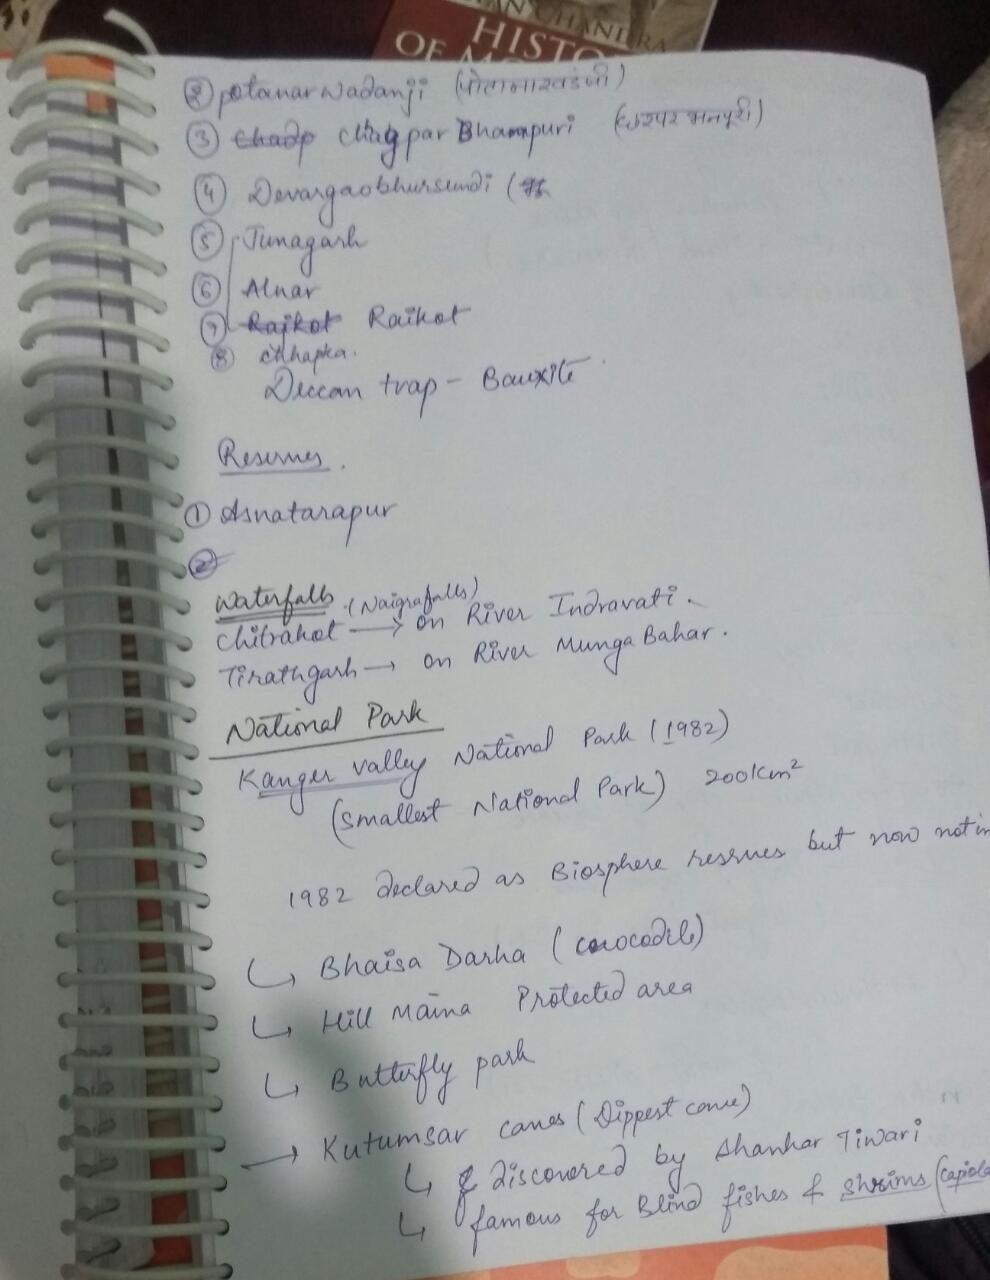 HISTO
OF MO
② potanarwadanji (पोटानारवडंजी)
③ chagpar Bhanpuri
④ Devargaobhursundi
⑤ Junagarh
⑥ Alnar
⑦ Rajkot Raikot
⑧ chhapka.
Deccan trap - Bauxite
Reserves.
① Asnatarapur
②
Waterfalls. (Naigrafalls)
Chitrakot → on River Indravati.
Tirathgarh → on River MungaBahar.
National Park
Kanger valley National Park (1982)
(smallest National Park) 200km²
1982 declared as Biosphere reserves but now not in
↳ Bhaisa Darha (crocodile)
↳ Hill Maina Protected area
↳ Butterfly park
→ Kutumsar caves (Dippest cave)
↳ discovered by Shankar Tiwari
↳ famous for Blind fishes & shrims (capiola